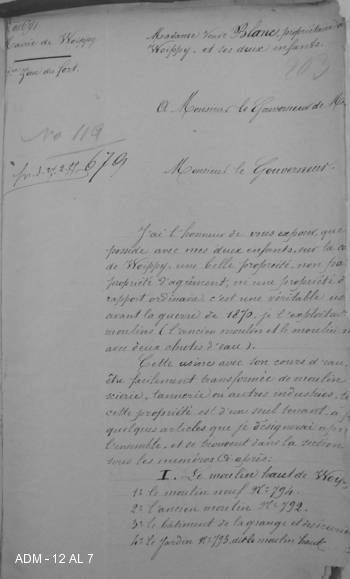 Mairie de Woippy
Zone du fort.
Madame Veuve Blanc, propriétaire à
Woippy, et ses deux enfants.
203
A Monsieur le Gouverneur de
No 119
679
Monsieur le Gouverneur.
J'ai l'honneur de vous exposer, que
possède avec mes deux enfants, sur la
de Woippy, une belle propriété, non pas
propriété d'agrément, ni une propriété d
rapport ordinaire c'est une véritable us
avant la guerre de 1870, je l'exploitais
moulins (l'ancien moulin et le moulin n
avec deux chutes d'eau).
Cette usine avec son cours d'eau,
être facilement transformée de moulin
scierie, tannerie ou autres industries,
cette propriété est d'un seul tenant, à
quelques articles que je désignerai
l'ensemble, et se trouvent dans la section
sous les numéros ci après:
I. Le moulin haut de Woip
1º le moulin neuf Nº 794.
2º l'ancien moulin Nº 792.
3º le bâtiment de la grange et des écuries
4º Le jardin Nº 793 dit le moulin haut
ADM - 12 AL 7